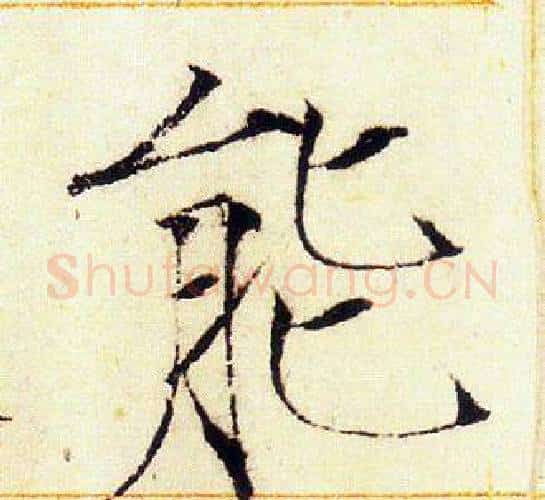 能
Shufawang.CN